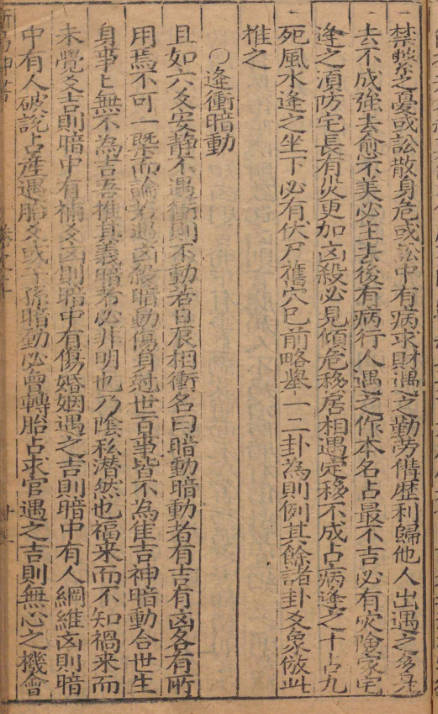 禁繫之憂或訟散身危或訟中有病求財遇之勤勞備歷利歸他人出遇之多是
去不成強去愈不美必主去後有病行人遇之作本名占最不吉必有灾險家宅
逢之湏防宅長有災更加凶殺必見傾危移居相遇定移不成占病逢之十占九
死風水逢之坐下必有伏尸舊穴巳前略舉一二卦為則例其餘諸卦爻象倣此
推之
○逢衝暗動
且如六爻安靜不遇衝則不動若日辰相衝名曰暗動暗動者有吉有凶各有所
用焉不可一槩而論若遇凶殺暗動傷身尅世百事皆不為佳吉神暗動合世生
身事上無不為吉吾推其義暗者必非明也乃陰私潛然也福来而不知禍来而
未覺爻吉則暗中有補爻凶則暗中有傷婚姻遇之吉則暗中有人綱維凶則暗
中有人破說占産遇胎爻或子孫暗動必會轉胎占求官遇之吉則無心之機會